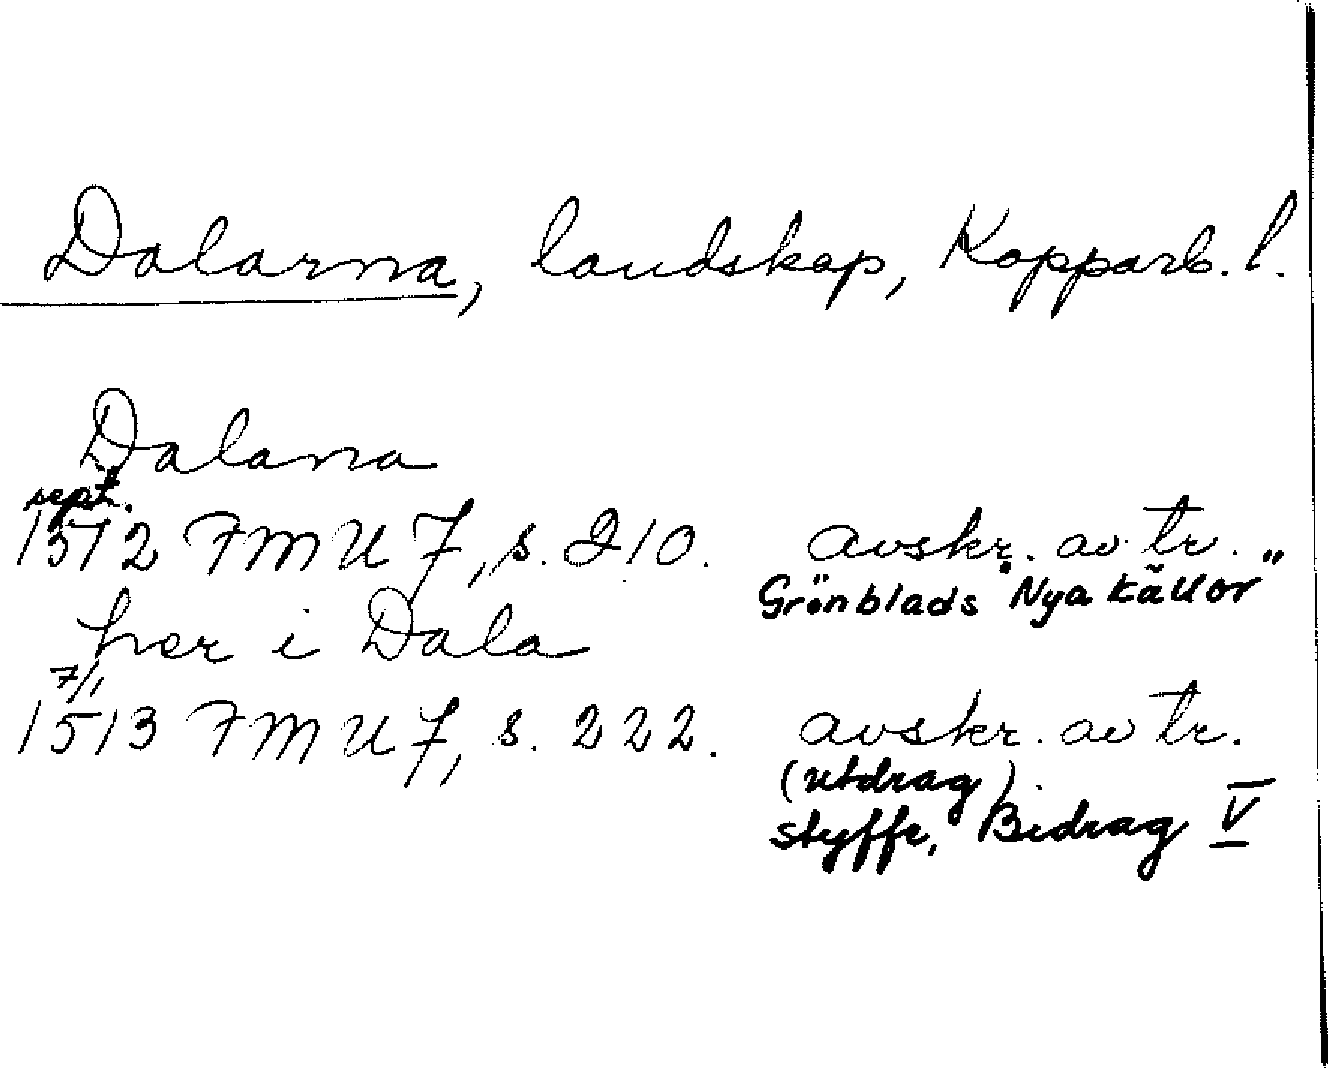 Dalarna, landskap, Kopparb. l.
Dalarna
sept.
1512 FMU 7, s. 210. avskr. av tr.
Grönblads "Nya källor"
her i Dala
7/1
1513 FMU 7, s. 222. avskr. av tr.
(utdrag)
Styffe, Bidrag V